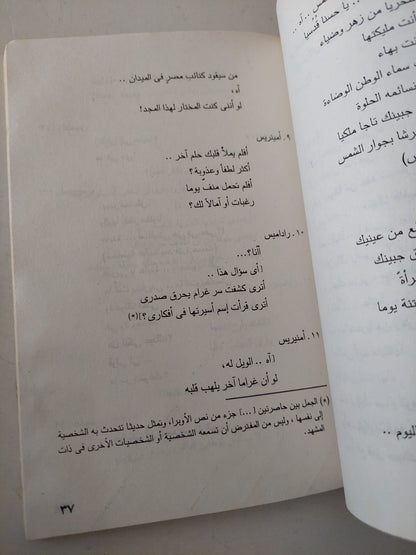 من سيقود كتائب مصر فى الميدان ..
آه،
لو أننى كنت المختار لهذا المجد!
٩. أمنيريس
أفلم يملأ قلبك حلم آخر ..
أكثر لطفاً وعذوبة؟
أفلم تحمل منف يوما
رغبات أو آمالاً لك؟
١٠. راداميس
أأنا؟...
{أى سؤال هذا ..
أترى كشفت سر غرام يحرق صدرى
أترى قرأت إسم أسيرتها فى أفكارى؟}(*)
١١. أمنيريس
{آه .. الويل له،
لو أن غراما آخر يلهب قلبه
(*) الجمل بين حاصرتين {...} جزء من نص الأوبرا، وتمثل حديثا تتحدث به الشخصية
إلى نفسها، وليس من المفترض أن تسمعه الشخصية أو الشخصيات الأخرى فى ذات
المشهد.
٣٧
.. يا حسنا قدسيا
من زهر وضياء
أنت مليكتها
بهاء
سماء الوطن الوضاءة
نسائمه الحلوة
جبينك تاجا ملكيا
بجوار الشمس
من عينيك
جبينك
يوما
اليوم ..